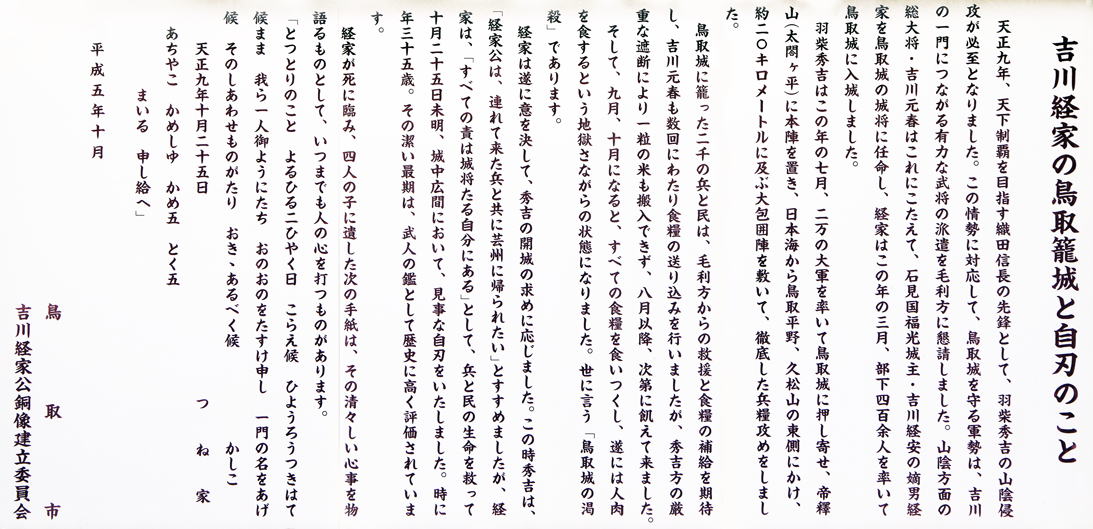 吉川経家の鳥取籠城と自刃のこと
天正九年、天下制覇を目指す織田信長の先鋒として、羽柴秀吉の山陰侵
攻が必至となりました。この情勢に対応して、鳥取城を守る軍勢は、吉川
の一門につながる有力な武将の派遣を毛利方に懇請しました。山陰方面の
総大将・吉川元春はこれにこたえて、石見国福光城主・吉川経安の嫡男経
家を鳥取城の城将に任命し、経家はこの年の三月、部下四百余人を率いて
鳥取城に入城しました。
羽柴秀吉はこの年の七月、二万の大軍を率いて鳥取城に押し寄せ、帝釋
山(太閤ヶ平)に本陣を置き、日本海から鳥取平野、久松山の東側にかけ、
約二〇キロメートルに及ぶ大包囲陣を敷いて、徹底した兵糧攻めをしまし
た。
鳥取城に籠った二千の兵と民は、毛利方からの救援と食糧の補給を期待
し、吉川元春も数回にわたり食糧の送り込みを行いましたが、秀吉方の厳
重な遮断により一粒の米も搬入できず、八月以降、次第に飢えて来ました。
そして、九月、十月になると、すべての食糧を食いつくし、遂には人肉
を食するという地獄さながらの状態になりました。世に言う「鳥取城の渇
殺」であります。
経家は遂に意を決して、秀吉の開城の求めに応じました。この時秀吉は、
「経家公は、連れて来た兵と共に芸州に帰られたい」とすすめましたが、経
家は、「すべての責は城将たる自分にある」として、兵と民の生命を救って
十月二十五日未明、城中広間において、見事な自刃をいたしました。時に
年三十五歳。その潔い最期は、武人の鑑として歴史に高く評価されていま
す。
経家が死に臨み、四人の子に遺した次の手紙は、その清々しい心事を物
語るものとして、いつまでも人の心を打つものがあります。
「とつとりのこと よるひる二ひやく日 こらえ候 ひようろうつきはて
候まま 我ら一人御ようにたち おのおのをたすけ申し 一門の名をあげ
候 そのしあわせものがたり おき、あるべく候 かしこ
天正九年十月二十五日 つね家
あちやこ かめしゆ かめ五 とく五
まいる 申し給へ」
平成五年十月
鳥取市
吉川経家公銅像建立委員会